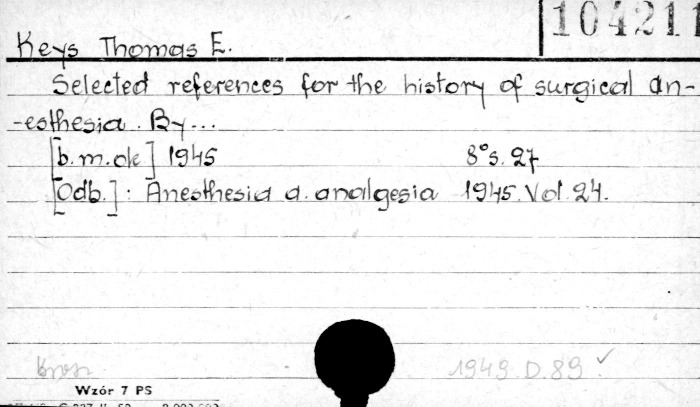 104211
Keys Thomas E.
Selected references for the history of surgical an-
-esthesia. By...
[b.m.dr.] 1945 8°s. 27
[Odb.]: Anesthesia a. analgesia 1945. Vol. 24.
1949 D.89 ✓
Wzór 7 PS